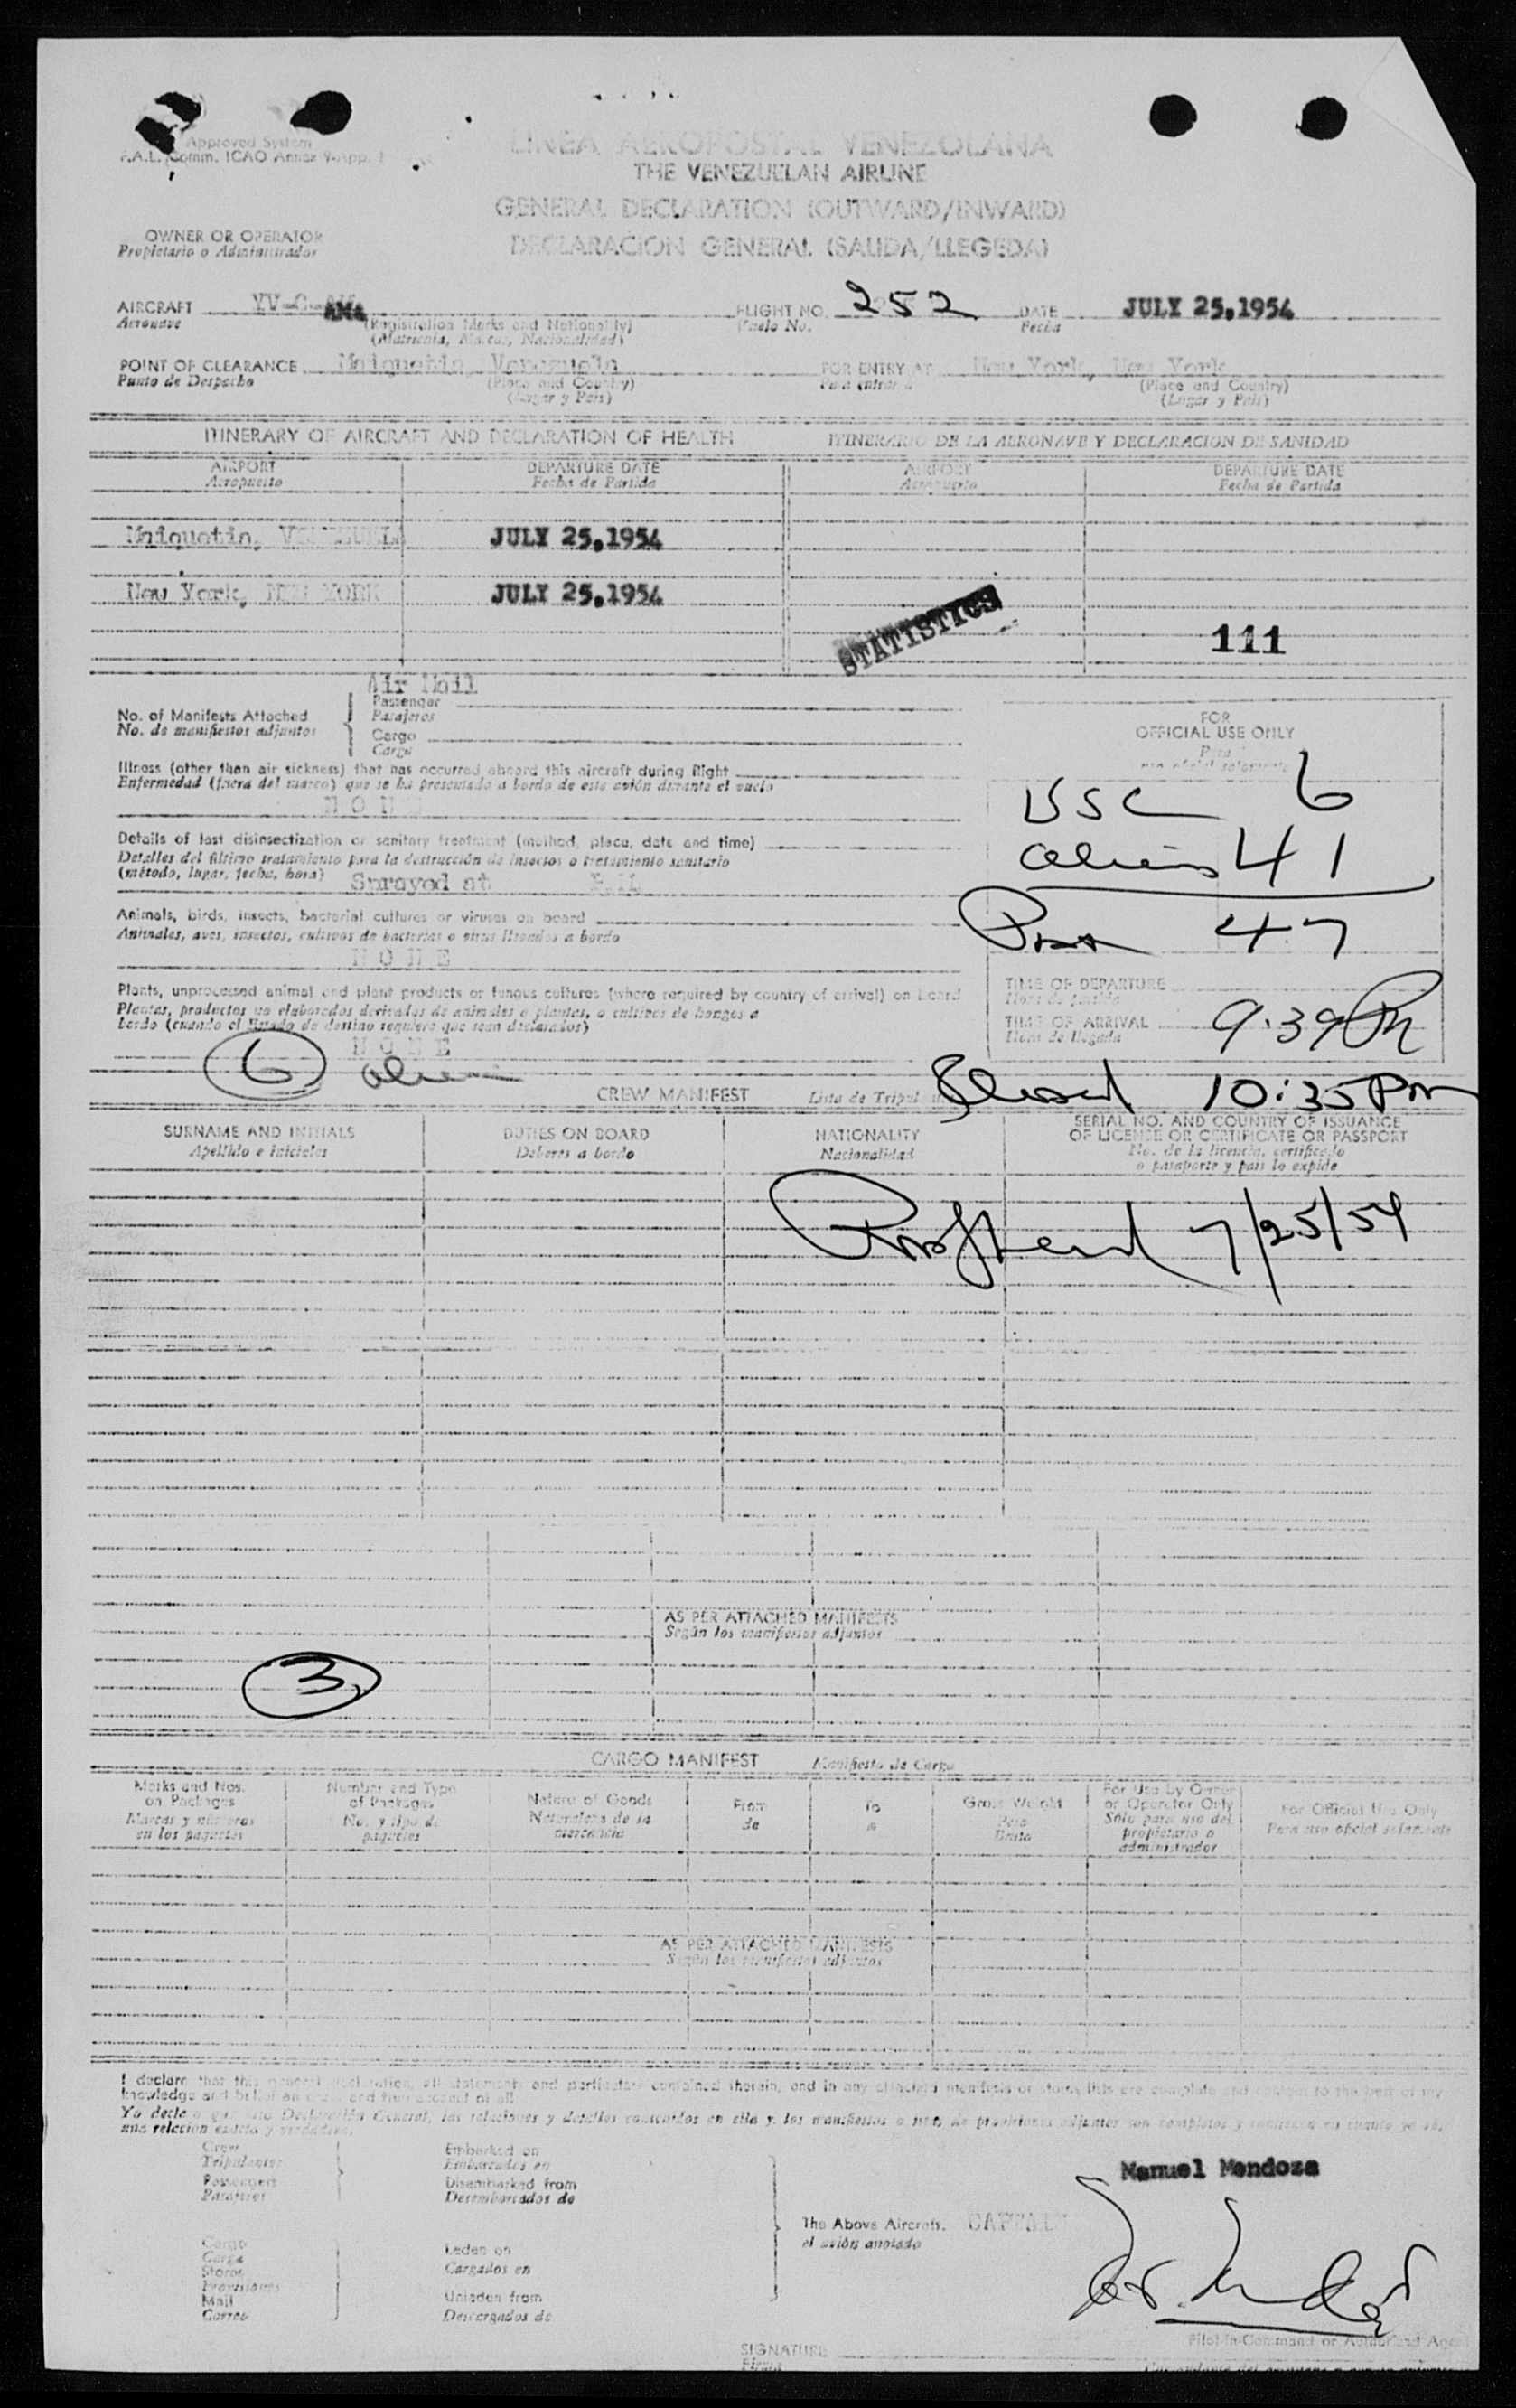 Approved System
F.A.L. Comm. ICAO Annex 9-App. 1
LINEA AEROPOSTAL VENEZOLANA
THE VENEZUELAN AIRLINE
GENERAL DECLARATION (OUTWARD/INWARD)
DECLARACION GENERAL (SALIDA/LLEGEDA)
OWNER OR OPERATOR
Propietario o Administrador
AIRCRAFT YV-C-AMA FLIGHT NO. 252 DATE JULY 25,1954
Aeronave (Registration Marks and Nationality) Vuelo No. Fecha
(Matricula, Marcas, Nacionalidad)
POINT OF CLEARANCE Maiquetia, Venezuela FOR ENTRY AT New York, New York
Punto de Despacho (Place and Country) Para entrar a (Place and Country)
(Lugar y Pais) (Lugar y Pais)
ITINERARY OF AIRCRAFT AND DECLARATION OF HEALTH ITINERARIO DE LA AERONAVE Y DECLARACION DE SANIDAD
AIRPORT DEPARTURE DATE AIRPORT DEPARTURE DATE
Aeropuerto Fecha de Partida Aeropuerto Fecha de Partida
Maiquetia, VENEZUELA JULY 25,1954
New York, NEW YORK JULY 25,1954
STATISTICS
111
Air Mail
No. of Manifests Attached Passenger
No. de manifiestos adjuntos Pasajeros
Cargo
Carga
FOR
OFFICIAL USE ONLY
Para
uso oficial solamente
Illness (other than air sickness) that has occurred aboard this aircraft during flight
Enfermedad (fuera del mareo) que se ha presentado a bordo de este avión durante el vuelo
NONE
USC 6
Aliens 41
Pax 47
Details of last disinsectization or sanitary treatment (method, place, date and time)
Detalles del último tratamiento para la destrucción de insectos o tratamiento sanitario
(método, lugar, fecha, hora) Sprayed at P.M.
Animals, birds, insects, bacterial cultures or viruses on board
Animales, aves, insectos, cultivos de bacterias o virus llevados a bordo
NONE
Plants, unprocessed animal and plant products or fungus cultures (where required by country of arrival) on board
Plantas, productos no elaborados derivados de animales o plantas, o cultivos de hongos a
bordo (cuando el Estado de destino requiere que sean declarados)
NONE
TIME OF DEPARTURE
Hora de partida
TIME OF ARRIVAL 9:39 PM
Hora de llegada
6 alien
10:35 PM
CREW MANIFEST Lista de Tripulantes
SURNAME AND INITIALS DUTIES ON BOARD NATIONALITY SERIAL NO. AND COUNTRY OF ISSUANCE
OF LICENSE OR CERTIFICATE OR PASSPORT
Apellido e iniciales Deberes a bordo Nacionalidad No. de la licencia, certificado
o pasaporte y pais lo expide
7/25/54
AS PER ATTACHED MANIFESTS
Según los manifiestos adjuntos
3
CARGO MANIFEST Manifiesto de Carga
Marks and Nos. on Packages Number and Type of Packages Nature of Goods From To Gross Weight For Use by Owner or Operator Only For Official Use Only
Marcas y números en los paquetes No. y tipo de paquetes Naturaleza de la mercancia de a Peso Bruto Sólo para uso del propietario o administrador Para uso oficial solamente
AS PER ATTACHED MANIFESTS
Según los manifiestos adjuntos
I declare that this general declaration, all statements and particulars contained therein, and in any attached manifests or stores lists are complete and correct to the best of my
knowledge and belief
Crew
Tripulantes
Passengers
Pasajeros
Embarked on
Embarcados en
Disembarked from
Desembarcados de
Manuel Mendoza
The Above Aircraft. CAPTAIN
el avión anotado
Cargo
Carga
Stores
Provisiones
Mail
Correo
Laden on
Cargados en
Unladen from
Descargados de
Pilot-in-Command or Authorized Agent
SIGNATURE
Firma